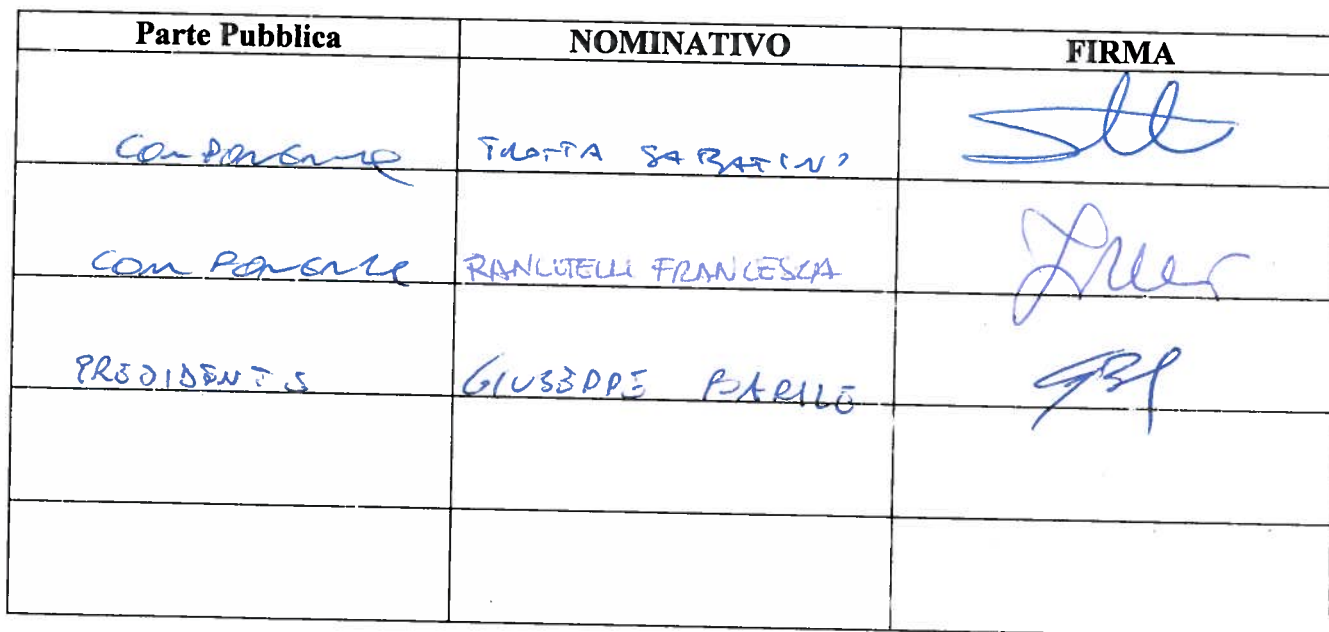 Parte Pubblica NOMINATIVO FIRMA
Componente TROTTA SABATINO
Componente RANCITELLI FRANCESCA
PRESIDENTE GIUSEPPE BARILE